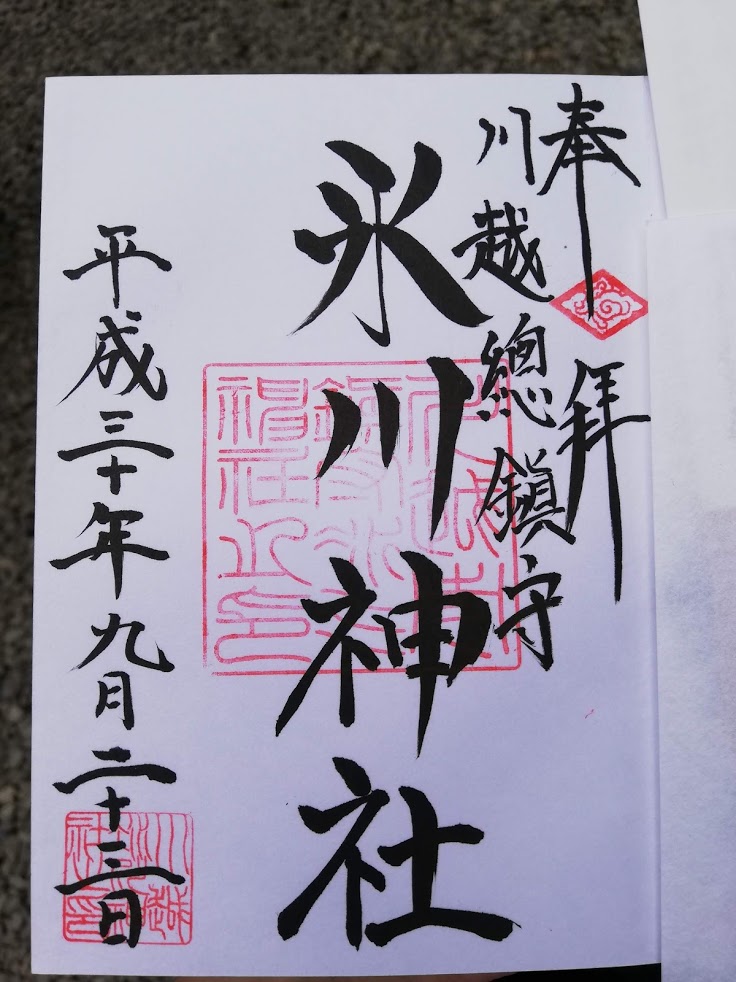 奉拝
川越總鎮守
氷川神社
平成三十年九月二十三日